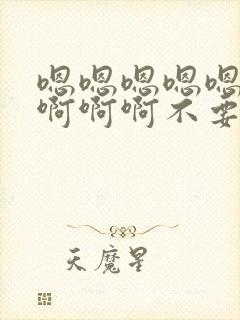 嗯嗯嗯嗯嗯
啊啊啊不要
天魔星